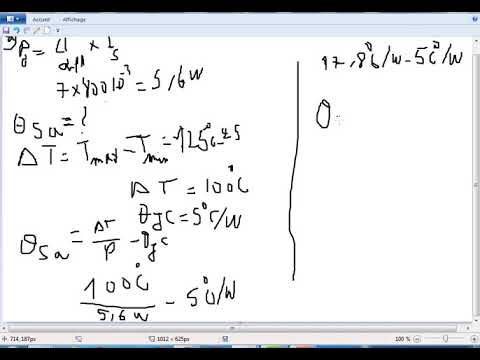 Accueil Affichage
Pd = U × Is
7×800 10^-3 = 5,6 W
θSa = ?
ΔT = Tmax - Tmin = 125°C - 25
ΔT = 100°C
θJC = 5°C/W
θSa = ΔT/P - θJC
100°C/5,6W - 5°C/W
17,8°C/W - 5°C/W
θ
714, 187px
1012 × 625px
100 %